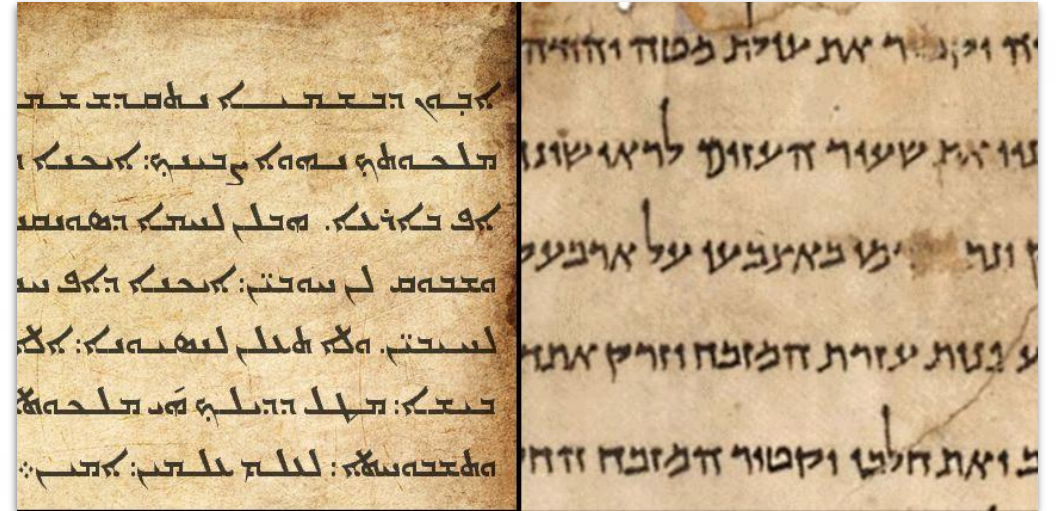 ܐܒܘܢ ܕܒܫܡܝܐ ܢܬܩܕܫ
ܡܠܟܘܬܟ ܢܗܘܐ ܨܒܝܢܟ: ܐܝܟܢܐ
ܐܦ ܒܐܪܥܐ. ܗܒܠܢ ܠܚܡܐ
ܘܫܒܘܩ ܠܢ ܚܘܒܝܢ: ܐܝܟܢܐ ܕܐܦ
ܠܚܝܒܝܢ. ܘܠܐ ܬܥܠܢ ܠܢܣܝܘܢܐ: ܐܠܐ
ܒܝܫܐ: ܡܛܠ ܕܕܝܠܟ ܗܝ ܡܠܟܘܬܐ
ܘܬܫܒܘܚܬܐ: ܠܥܠܡ ܥܠܡܝܢ: ܐܡܝܢ܀
את עולת מטה יהודה
את שעיר העזים
באצבעו על
עזרת המזבח וזרק
ואת חלבו יקטיר המזבח